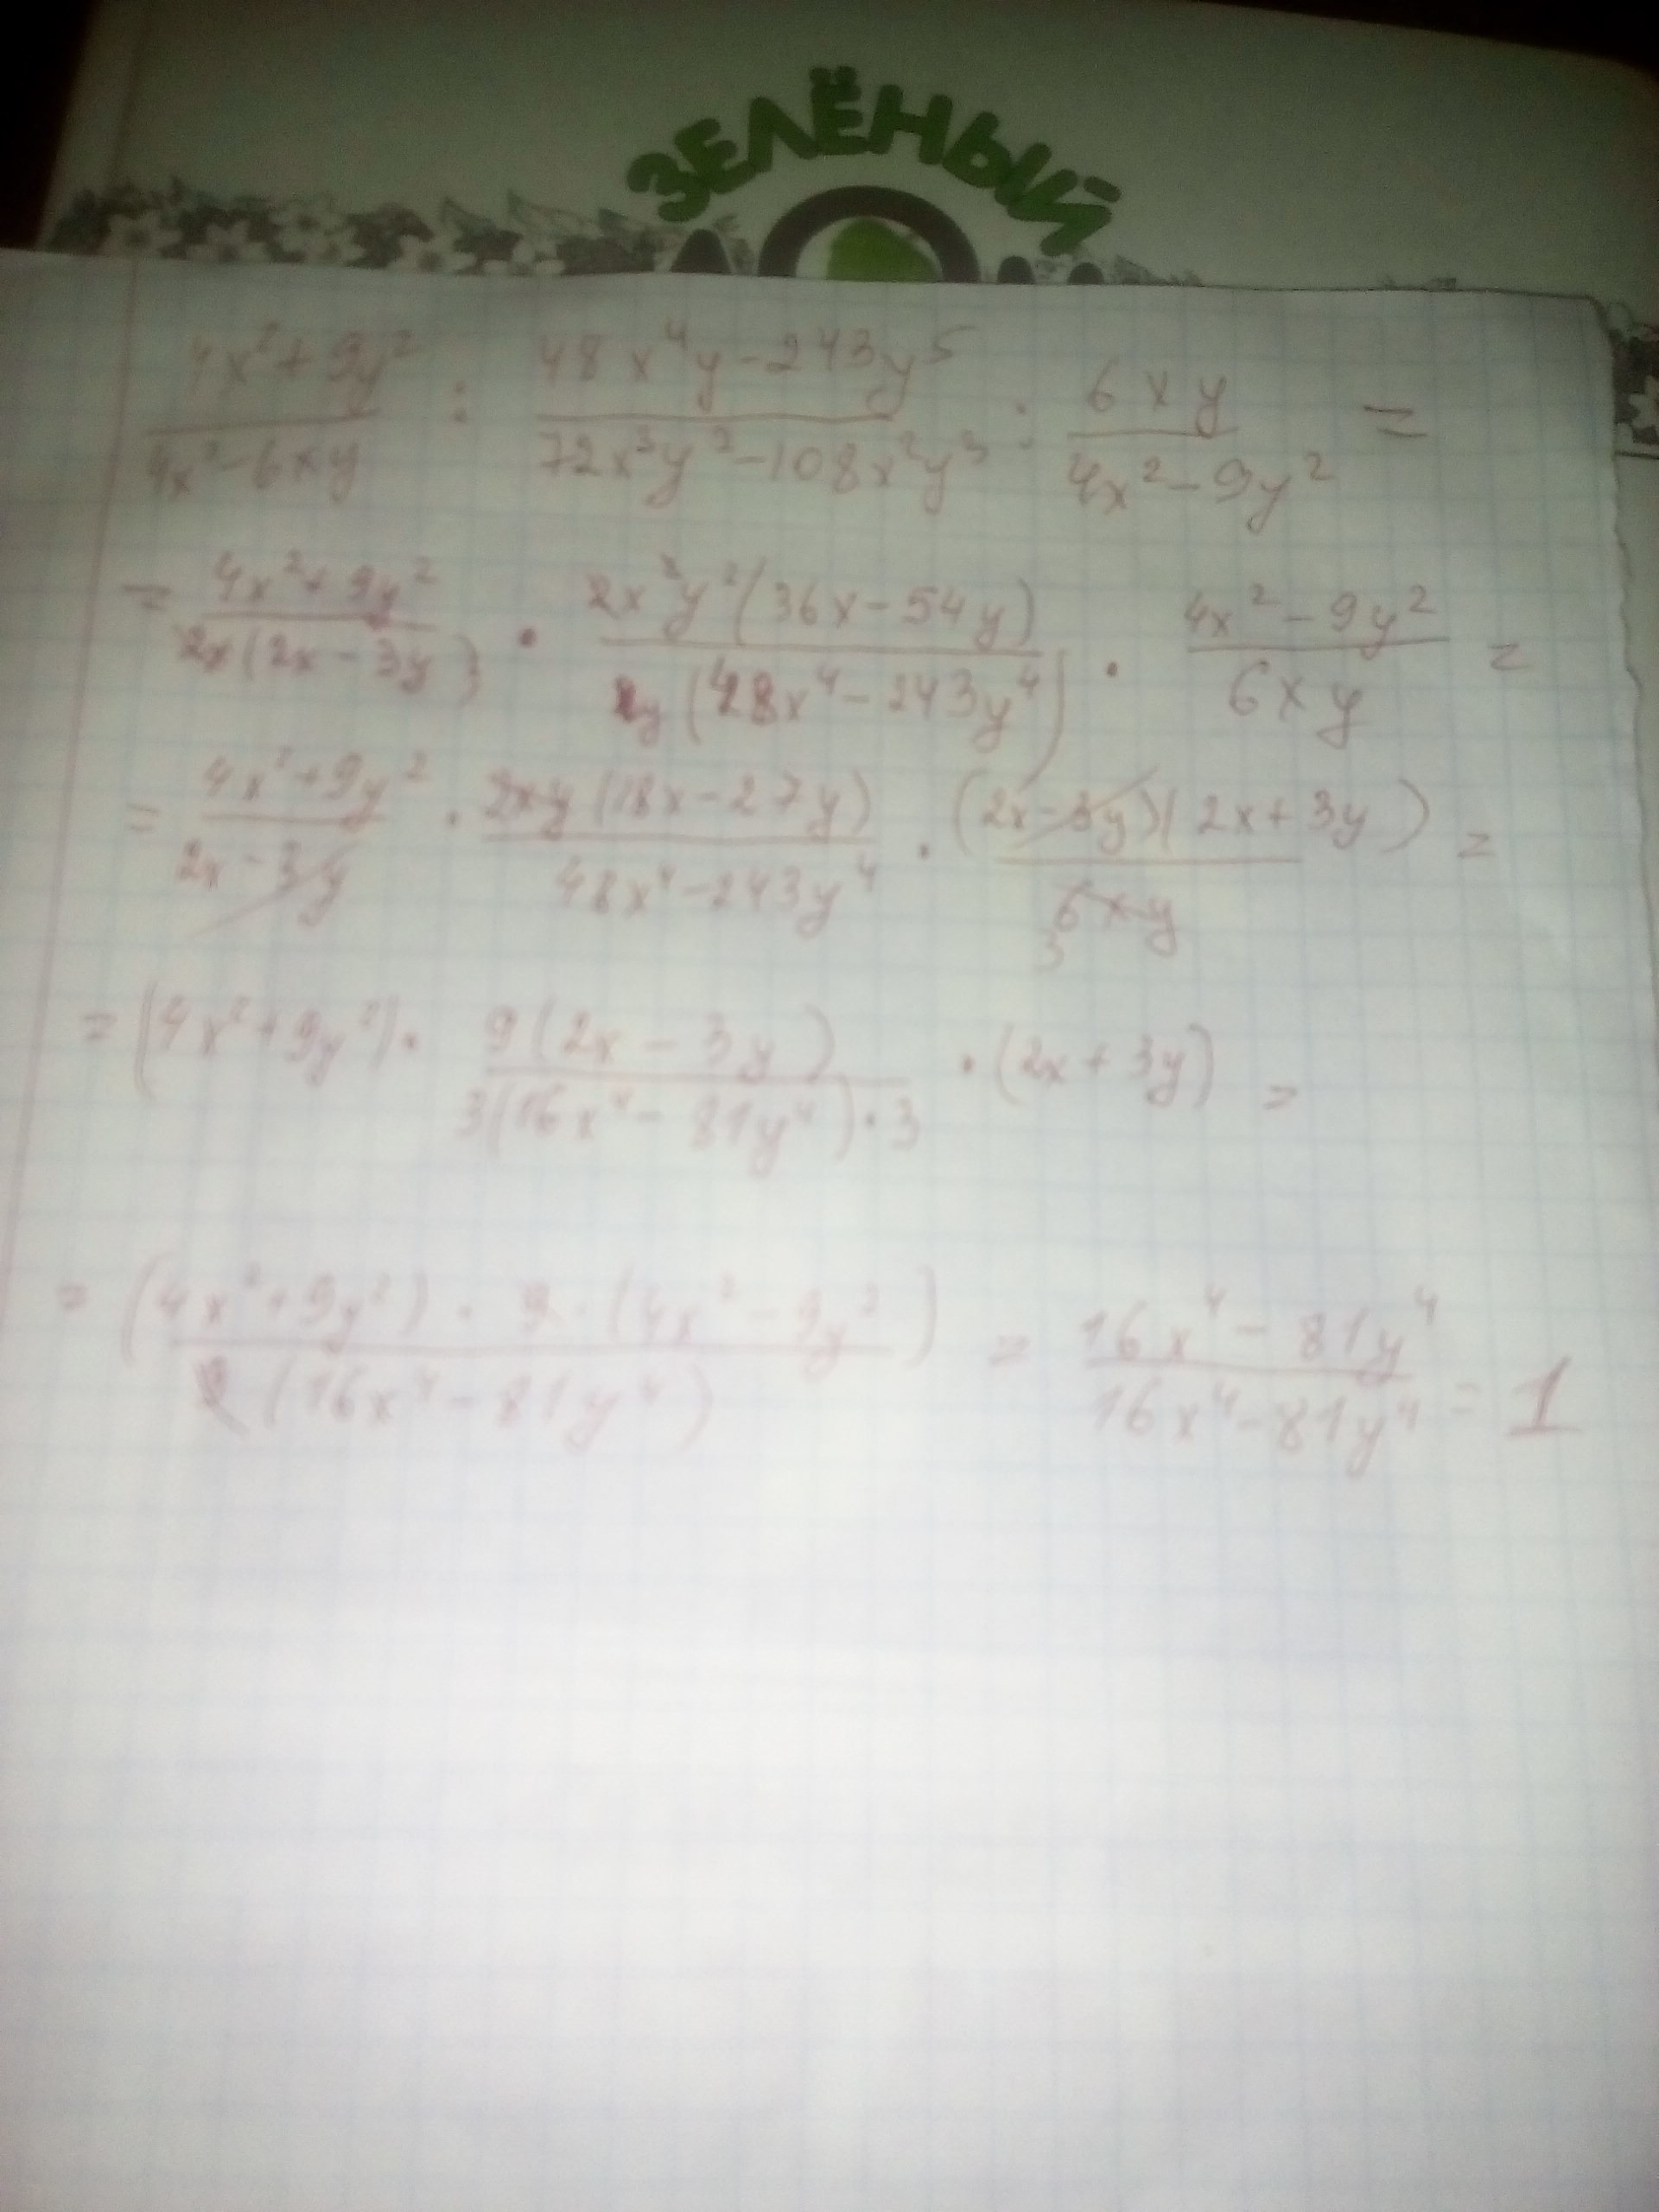 ЗЕЛЁНЫЙ
(4x² + 9y²)/(4x² - 6xy) : (48x⁴y - 243y⁵)/(72x³y² - 108x²y³) : (6xy)/(4x² - 9y²) =
= (4x² + 9y²)/(2x(2x - 3y)) · (2x²y²(36x - 54y))/(y(48x⁴ - 243y⁴)) · (4x² - 9y²)/(6xy) =
= (4x² + 9y²)/(2x - 3y) · (2xy(18x - 27y))/(48x⁴ - 243y⁴) · ((2x - 3y)(2x + 3y))/(6xy) =
3
= (4x² + 9y²) · (9(2x - 3y))/(3(16x⁴ - 81y⁴) · 3) · (2x + 3y) =
= ((4x² + 9y²) · 9 · (4x² - 9y²))/(9(16x⁴ - 81y⁴)) = (16x⁴ - 81y⁴)/(16x⁴ - 81y⁴) = 1